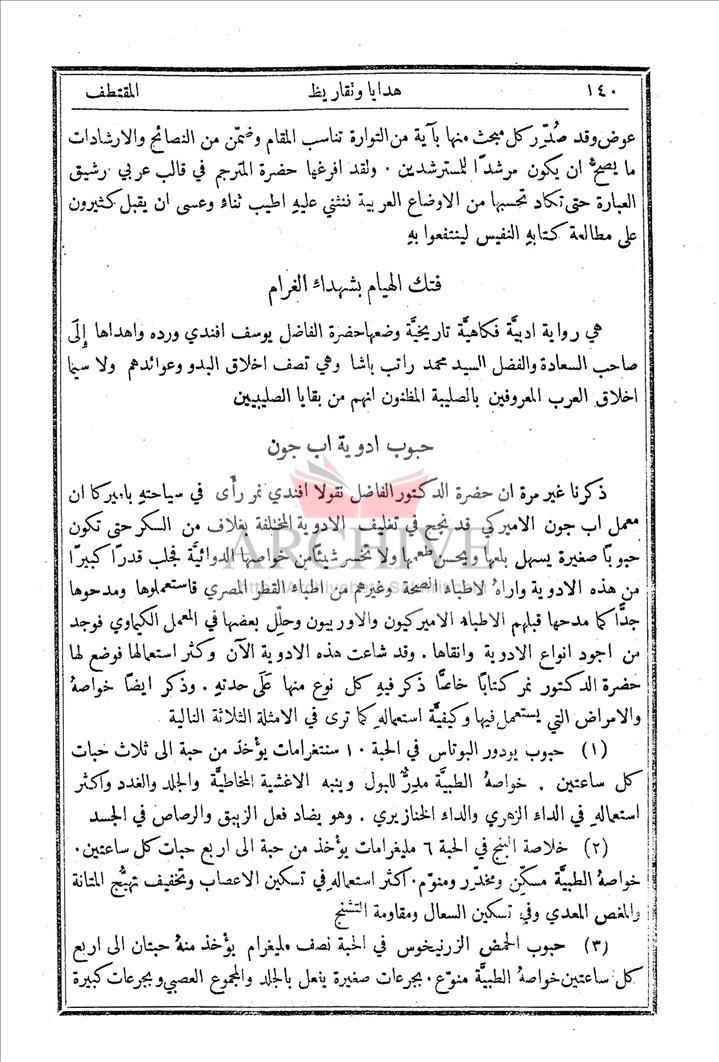 ١٤٠ هدايا وتقاريظ المقتطف
عوض وقد صُدِّر كل مبحث منها بآية من التوراة تناسب المقام وضمّن من النصائح والارشادات
ما يصحّ ان يكون مرشدًا للمسترشدين . ولقد افرغها حضرة المترجم في قالب عربي رشيق
العبارة حتى تكاد تحسبها من الاوضاع العربية فنثني عليهِ اطيب ثناء وعسى ان يقبل كثيرون
على مطالعة كتابهِ النفيس لينتفعوا بهِ
فتك الهيام بشهداء الغرام
هي رواية ادبيَّة فكاهيَّة تاريخيَّة وضعها حضرة الفاضل يوسف افندي ورده واهداها إِلَى
صاحب السعادة والفضل السيد محمد راتب باشا وهي تصف اخلاق البدو وعوائدهم ولا سيما
اخلاق العرب المعروفين بالصليبة المظنون انهم من بقايا الصليبيين
حبوب ادوية اب جون
ذكرنا غير مرة ان حضرة الدكتور الفاضل نقولا افندي نمر رأَى في سياحتهِ باميركا ان
معمل اب جون الاميركي قد نجح في تغليف الادوية المختلفة بغلاف من السكر حتى تكون
حبوبًا صغيرة يسهل بلعها ويحسن طعمها ولا تخسر شيئًا من خواصها الدوائيَّة فجلب قدرًا كبيرًا
من هذه الادوية واراهُ لاطباء الصحة وغيرهم من اطباء القطر المصري فاستعملوها ومدحوها
جدًّا كما مدحها قبلهم الاطباء الاميركيون والاوربيون وحلّل بعضها في المعمل الكيماوي فوجد
من اجود انواع الادوية وانقاها . وقد شاعت هذه الادوية الآن وكثر استعمالها فوضع لها
حضرة الدكتور نمر كتابًا خاصًّا ذكر فيهِ كل نوع منها عَلَى حدته . وذكر ايضًا خواصهُ
والامراض التي يستعمل فيها وكيفيَّة استعمالهِ كما ترى في الامثلة الثلاثة التالية
(١) حبوب يودور البوتاس في الحبة ١٠ سنتغرامات يؤخذ من حبة الى ثلاث حبات
كل ساعتين . خواصهُ الطبيَّة مدِرٌّ للبول وينبه الاغشية المخاطيَّة والجلد والغدد واكثر
استعمالهِ في الداء الزهري والداء الخنازيري . وهو يضاد فعل الزيبق والرصاص في الجسد
(٢) خلاصة البنج في الحبة ٦ مليغرامات يؤخذ من حبة الى اربع حبات كل ساعتين .
خواصهُ الطبيَّة مسكِّن ومخدِّر ومنوِّم . اكثر استعمالهِ في تسكين الاعصاب وتخفيف تهيُّج المثانة
والمغص المعدي وفي تسكين السعال ومقاومة التشنج
(٣) حبوب الحمض الزرنيخوس في الحبة نصف مليغرام يؤخذ منهُ حبتان الى اربع
كل ساعتين خواصهُ الطبيَّة منوّع . بجرعات صغيرة يفعل بالجلد والمجموع العصبي وبجرعات كبيرة
ARCHIVE